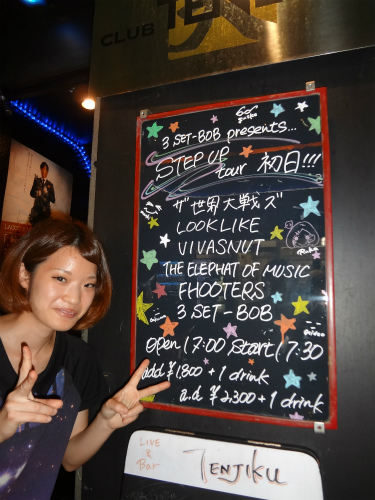 CLUB
3 SET-BOB presents...
STEP UP
tour 初日!!!
ザ 世界大戦ズ
LOOKLIKE
VIVASNUT
THE ELEPHAT OF MUSIC
FHOOTERS
3 SET-BOB
open 17:00 Start 17:30
add ¥1,800 + 1 drink
a.d ¥2,300 + 1 drink
LIVE & Bar
TENJIKU